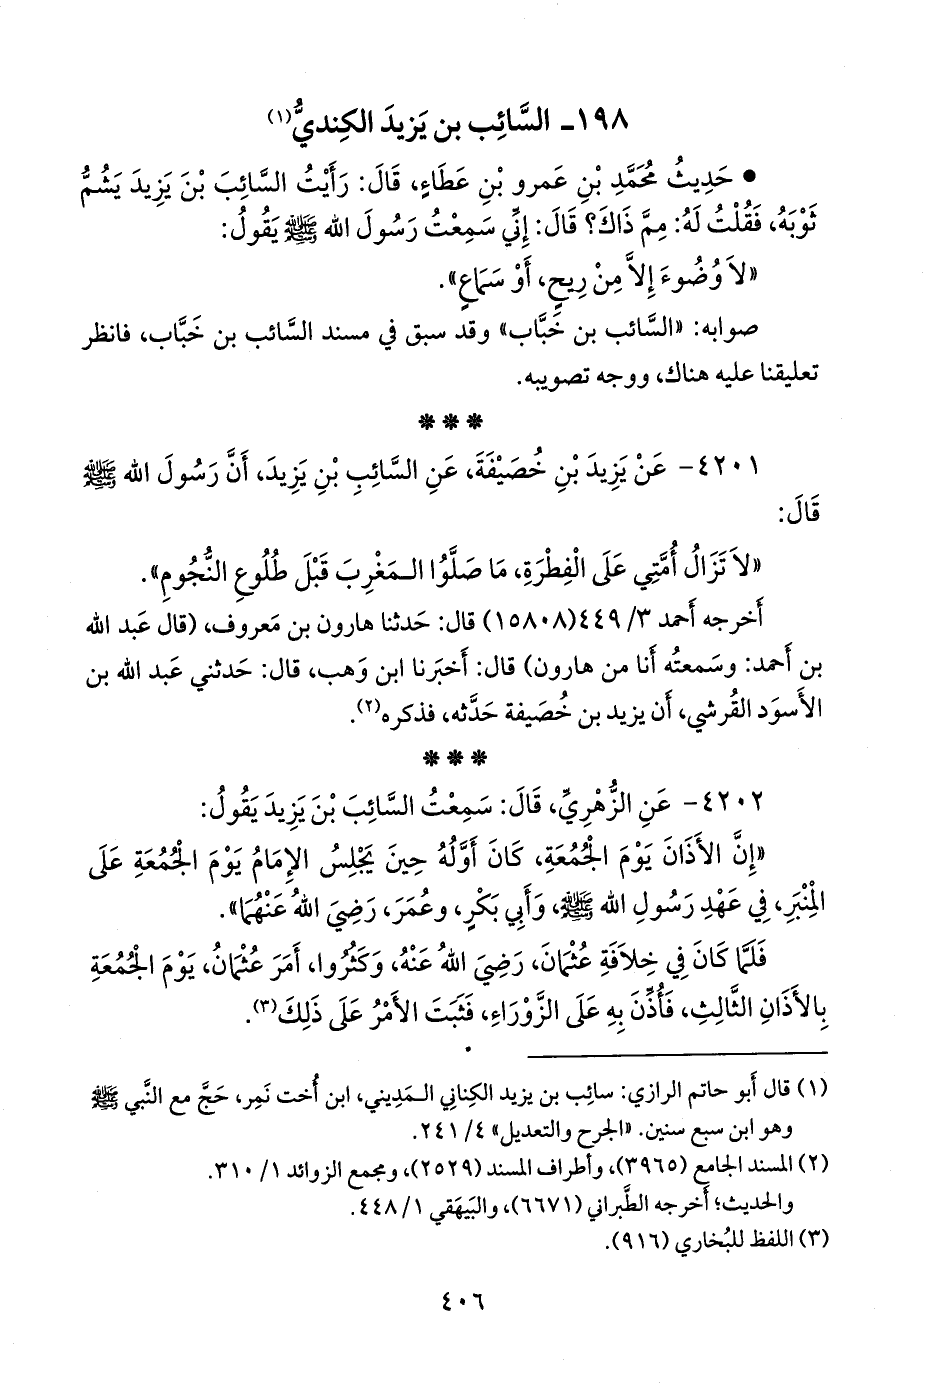 ١٩٨- السَّائِب بن يَزيدَ الكِنديُّ(١)
• حَدِيثُ مُحَمَّدِ بْنِ عَمرو بْنِ عَطَاءٍ، قَالَ: رَأَيْتُ السَّائِبَ بْنَ يَزِيدَ يَشُمُّ
ثَوْبَهُ، فَقُلْتُ لَهُ: مِمَّ ذَاكَ؟ قَالَ: إِنِّي سَمِعْتُ رَسُولَ الله ﷺ يَقُولُ:
«لاَ وُضُوءَ إِلاَّ مِنْ رِيحٍ، أَوْ سَمَاعٍ».
صوابه: «السَّائب بن خَبَّاب» وقد سبق في مسند السَّائب بن خَبَّاب، فانظر
تعليقنا عليه هناك، ووجه تصويبه.
***
٤٢٠١- عَنْ يَزِيدَ بْنِ خُصَيْفَةَ، عَنِ السَّائِبِ بْنِ يَزِيدَ، أَنَّ رَسُولَ الله ﷺ
قَالَ:
«لاَ تَزَالُ أُمَّتِي عَلَى الْفِطْرَةِ، مَا صَلَّوُا الـمَغْرِبَ قَبْلَ طُلُوعِ النُّجُومِ».
أَخرجه أَحمد ٣/ ٤٤٩(١٥٨٠٨) قال: حَدثنا هارون بن مَعروف، (قال عَبد الله
بن أَحمد: وسَمعتُه أَنا من هارون) قال: أَخبَرنا ابن وَهب، قال: حَدثني عَبد الله بن
الأَسوَد القُرشي، أَن يزيد بن خُصَيفة حَدَّثه، فذكره(٢).
***
٤٢٠٢- عَنِ الزُّهْرِيِّ، قَالَ: سَمِعْتُ السَّائِبَ بْنَ يَزِيدَ يَقُولُ:
«إِنَّ الأَذَانَ يَوْمَ الْجُمُعَةِ، كَانَ أَوَّلُهُ حِينَ يَجْلِسُ الإِمَامُ يَوْمَ الْجُمُعَةِ عَلَى
الْمِنْبَرِ، فِي عَهْدِ رَسُولِ الله ﷺ، وَأَبِي بَكْرٍ، وعُمَرَ، رَضِيَ اللهُ عَنْهُمَا».
فَلَمَّا كَانَ فِي خِلاَفَةِ عُثْمَانَ، رَضِيَ اللهُ عَنْهُ، وَكَثُرُوا، أَمَرَ عُثْمَانُ، يَوْمَ الْجُمُعَةِ
بِالأَذَانِ الثَّالِثِ، فَأُذِّنَ بِهِ عَلَى الزَّوْرَاءِ، فَثَبَتَ الأَمْرُ عَلَى ذَلِكَ(٣).
(١) قال أَبو حاتم الرازي: سائِب بن يزيد الكِناني الـمَديني، ابن أُخت نَمِر، حَجَّ مع النَّبي ﷺ
وهو ابن سبع سنين. «الجرح والتعديل» ٤/ ٢٤١.
(٢) المسند الجامع (٣٩٦٥)، وأطراف المسند (٢٥٢٩)، ومجمع الزوائد ١/ ٣١٠.
والحديث؛ أَخرجه الطَّبراني (٦٦٧١)، والبَيهَقي ١/ ٤٤٨.
(٣) اللفظ للبُخاري (٩١٦).
٤٠٦